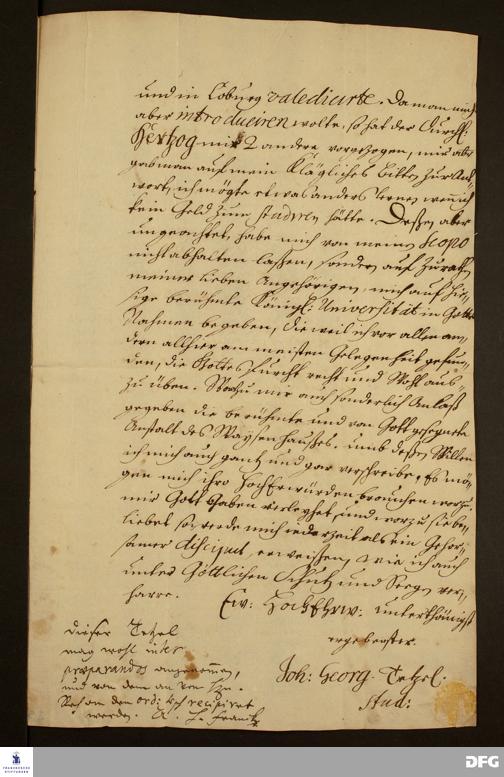 und in Coburg valedicirte. Da man mich
aber introduciren wolte, so hat der Durchl:
Hertzog mir 2 andere vorgezogen, mir aber
gab man auf mein klägliches bitten zur Ant
wort, ich mögte etwas anders lernen wenn ich
kein Geld zum studiren hätte. Deßen aber
ungeachtet, habe mich von meinem Scopo
nicht abhalten laßen, sondern auf Zurathen
meiner lieben Angehörigen, mich auf hie-
sige berühmte Königl: Universität in Gottes
Nahmen begeben, die weil ich vor allen an-
dern allhier am meisten Gelegenheit gefun-
den, die Gottes Furcht recht und Wohl aus-
zu üben. Wozu mir auch sonderlich Anlaß
gegeben die berühmte und von Gott gesegnete
Anstalt des Waysenhaußes. umb deßen Willen
ich mich auch gantz und gar verschreibe, Es mö-
gen mich ihro HochEhrwürden brauchen worzu
mir Gott Gaben verleyhet, und worzu sie be-
liebet so werde mich jederzeit als ein Gehor-
samer discipul, erweißen, wie ich auch
unter Göttlichen Schutz und Seegen ver-
harre.
Ew: HochEhrw: unterthänigst
ergebenster
Joh: Georg Tetzel.
Stud:
dießer Tetzel
mag wohl inter
præparandos angenommen,
und von dem an den
den ordi recipiret
werden. A. H. Franck
FRANCKESCHE STIFTUNGEN
DFG